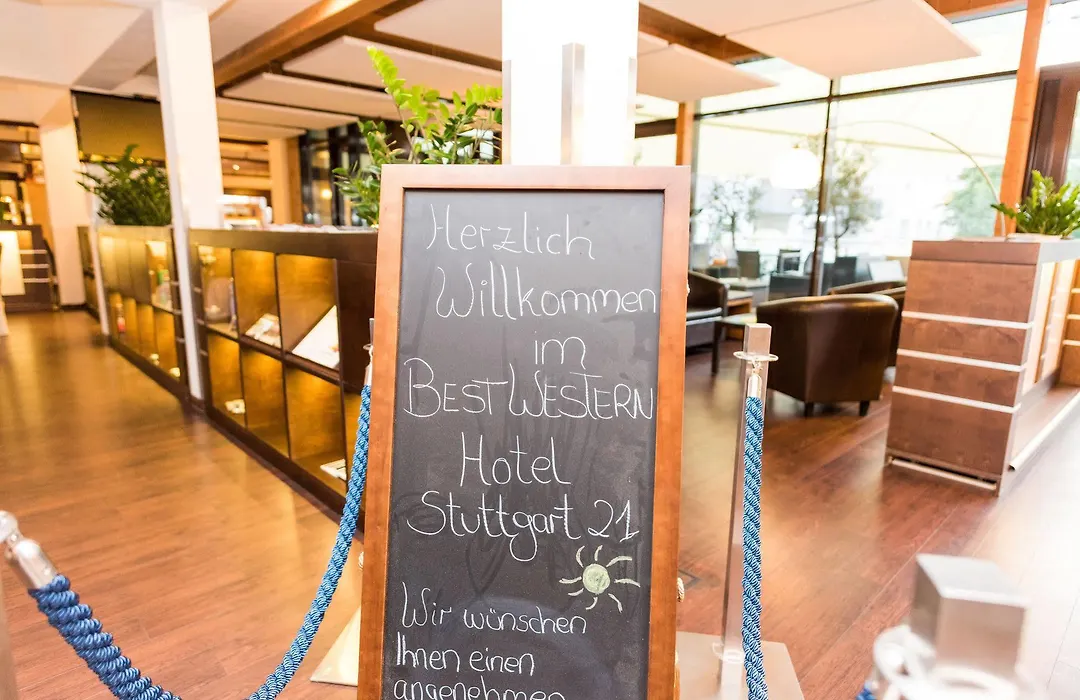 Herzlich
Willkommen
im
BEST WESTERN
Hotel
Stuttgart 21
Wir wünschen
Ihnen einen
angenehmen